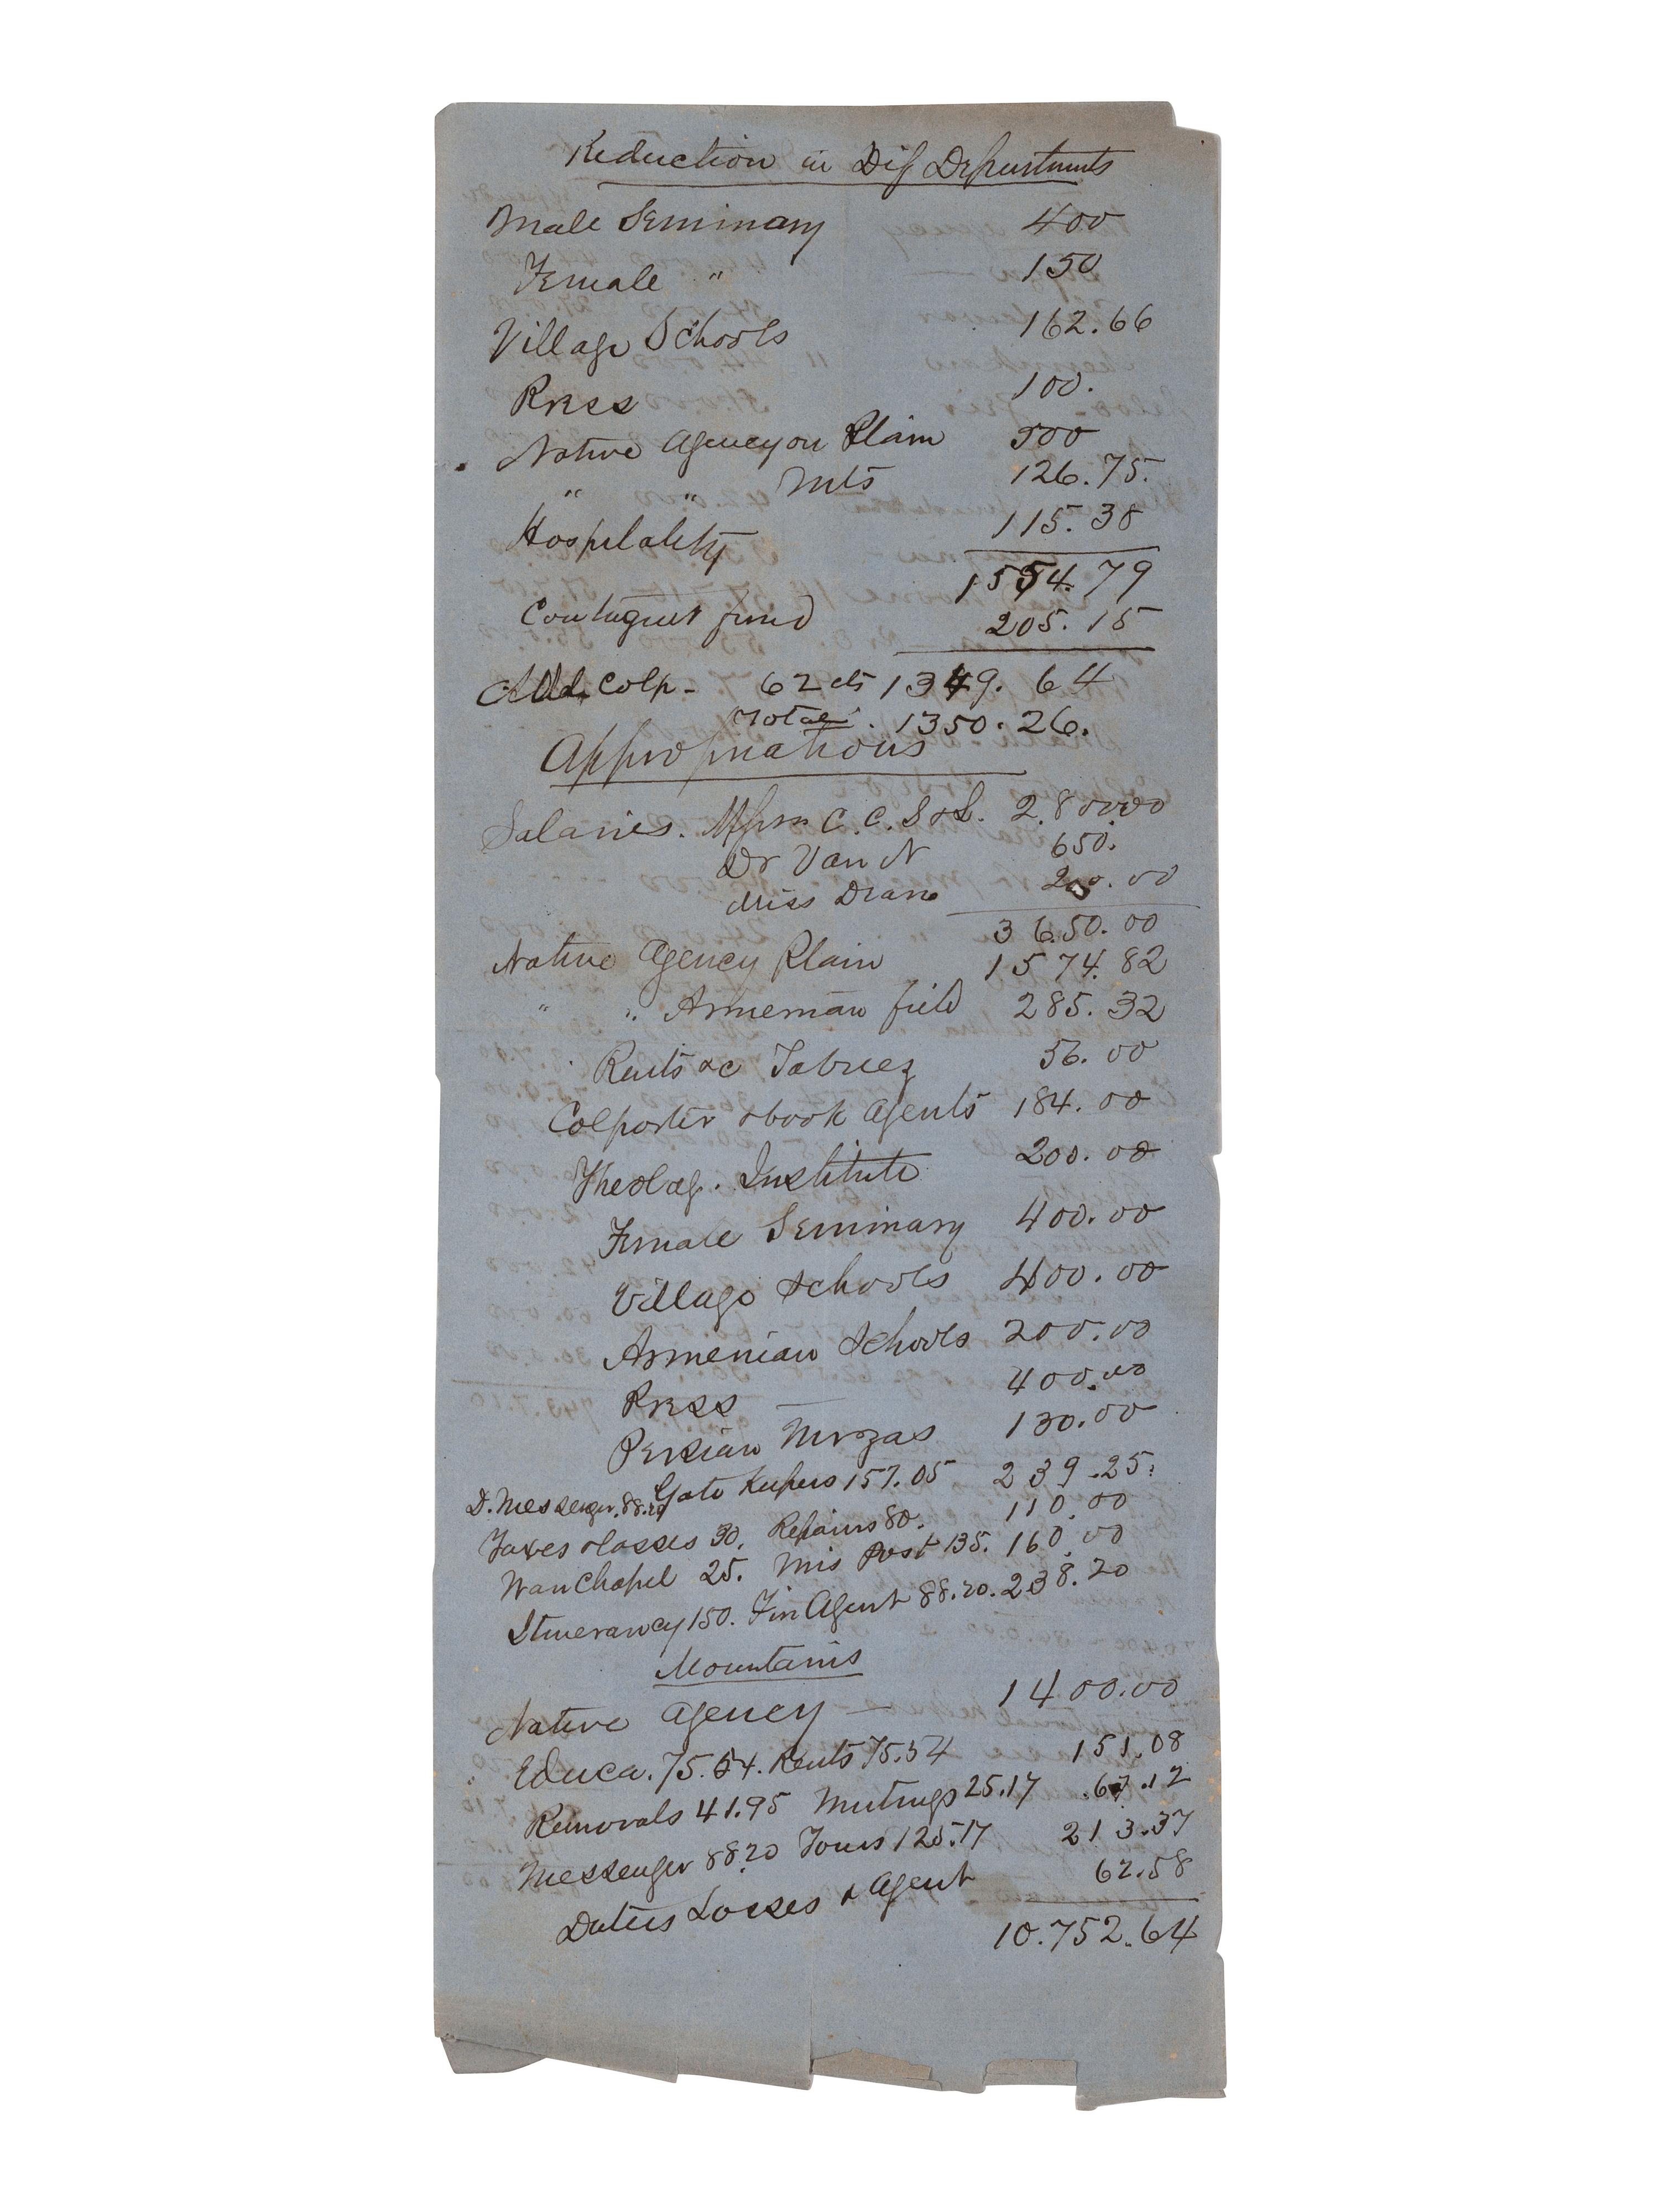 Reduction in Dif Departments
Male Seminary 400
Female " 150
Village Schools 162.66
Press 100.
Native Agency on Plain 500
" " Mts 126.75.
Hospitality 115.38
1554.79
Contingent fund 205.15
Add. Colp. 62 cts 1349.64
Total. 1350.26.
Appropriations
Salaries. C. C. S & L. 2.800.00
Dr Van N 650.
Miss Dean 200.00
3650.00
Native Agency Plain 1574.82
" " Armenian field 285.32
Rents &c Tabreez 56.00
Colporter & book Agents 184.00
Theolog. Institute 200.00
Female Seminary 400.00
Village Schools 400.00
Armenian Schools 200.00
Press — 400.00
Persian Mirzas 130.00
D. Messenger. 88.20 Gate Keepers 157.05 239.25.
Taxes & losses 30. Repairs 80. 110.00
Wan Chapel 25. Mis Post 135. 160.00
Itinerancy 150. Fin Agent 88.20. 238.20
Mountains
Native Agency — 1400.00
Educa. 75.54. Rents 75.54 151.08
Removals 41.95 Meetings 25.17 .67.12
Messenger 88.20 Tours 125.17 213.37
Duties Losses & Agent 62.58
10.752.64